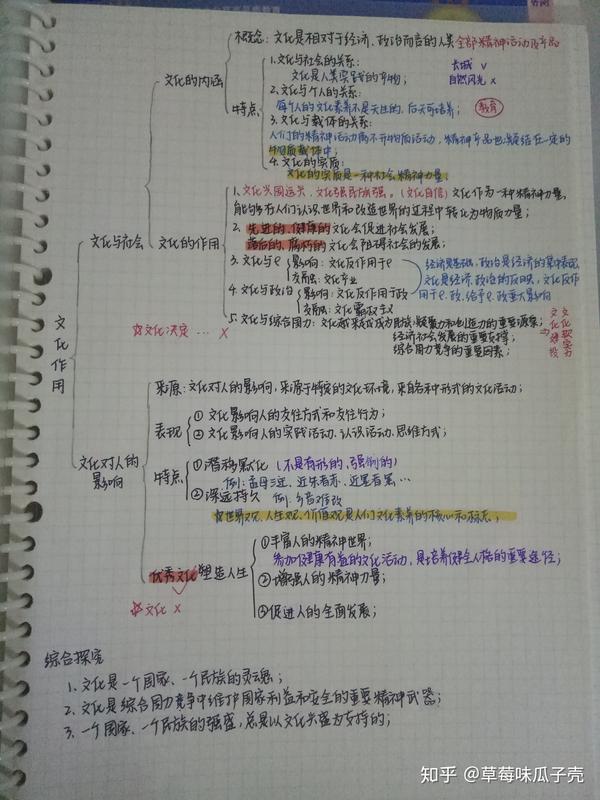 概念:文化是相对于经济、政治而言的人类全部精神活动及产品
文化的内涵
特点
1.文化与社会的关系: 长城 √
文化是人类实践的产物; 自然闪光 ×
2.文化与个人的关系:
每个人的文化素养不是天生的,后天可培养; 教育
3.文化与载体的关系:
人们的精神活动离不开物质活动,精神产品也凝结在一定的
物质载体中;
4.文化的实质:
文化的实质是一种社会精神力量;
文化与社会
文化的作用
1.文化兴国运兴,文化强民族强。(文化自信)文化作为一种精神力量,
能够在人们认识世界和改造世界的过程中转化为物质力量;
2.先进的,健康的文化会促进社会发展;
落后的,腐朽的文化会阻碍社会的发展;
3.文化与e
影响:文化反作用于e
表现:文化产业
经济是基础,政治是经济的集中表现
文化是经济、政治的反映,文化反作
用于e、政,给予e、政重大影响
4.文化与政治
影响:文化反作用于政
表现:文化霸权主义
5.文化与综合国力:文化越来越成为民族凝聚力和创造力的重要源泉;
经济社会发展的重要支撑;
综合国力竞争的重要因素;
文化软实力
☆文化决定… ×
文化作用
文化对人的
影响
来源:文化对人的影响,来源于特定的文化环境,来自各种形式的文化活动;
表现
①文化影响人的交往方式和交往行为;
②文化影响人的实践活动、认识活动、思维方式;
特点
①潜移默化(不是有形的,强制的)
例:孟母三迁,近朱者赤,近墨者黑…
②深远持久 例:乡音难改
☆世界观、人生观、价值观是人们文化素养的核心和标志;
优秀文化塑造人生
☆文化 ×
①丰富人的精神世界;
参加健康有益的文化活动,是培养健全人格的重要途径;
②增强人的精神力量;
③促进人的全面发展;
综合探究
1.文化是一个国家、一个民族的灵魂;
2.文化是综合国力竞争中维护国家利益和安全的重要精神武器;
3.一个国家、一个民族的强盛,总是以文化兴盛为支持的;
知乎 @草莓味瓜子壳